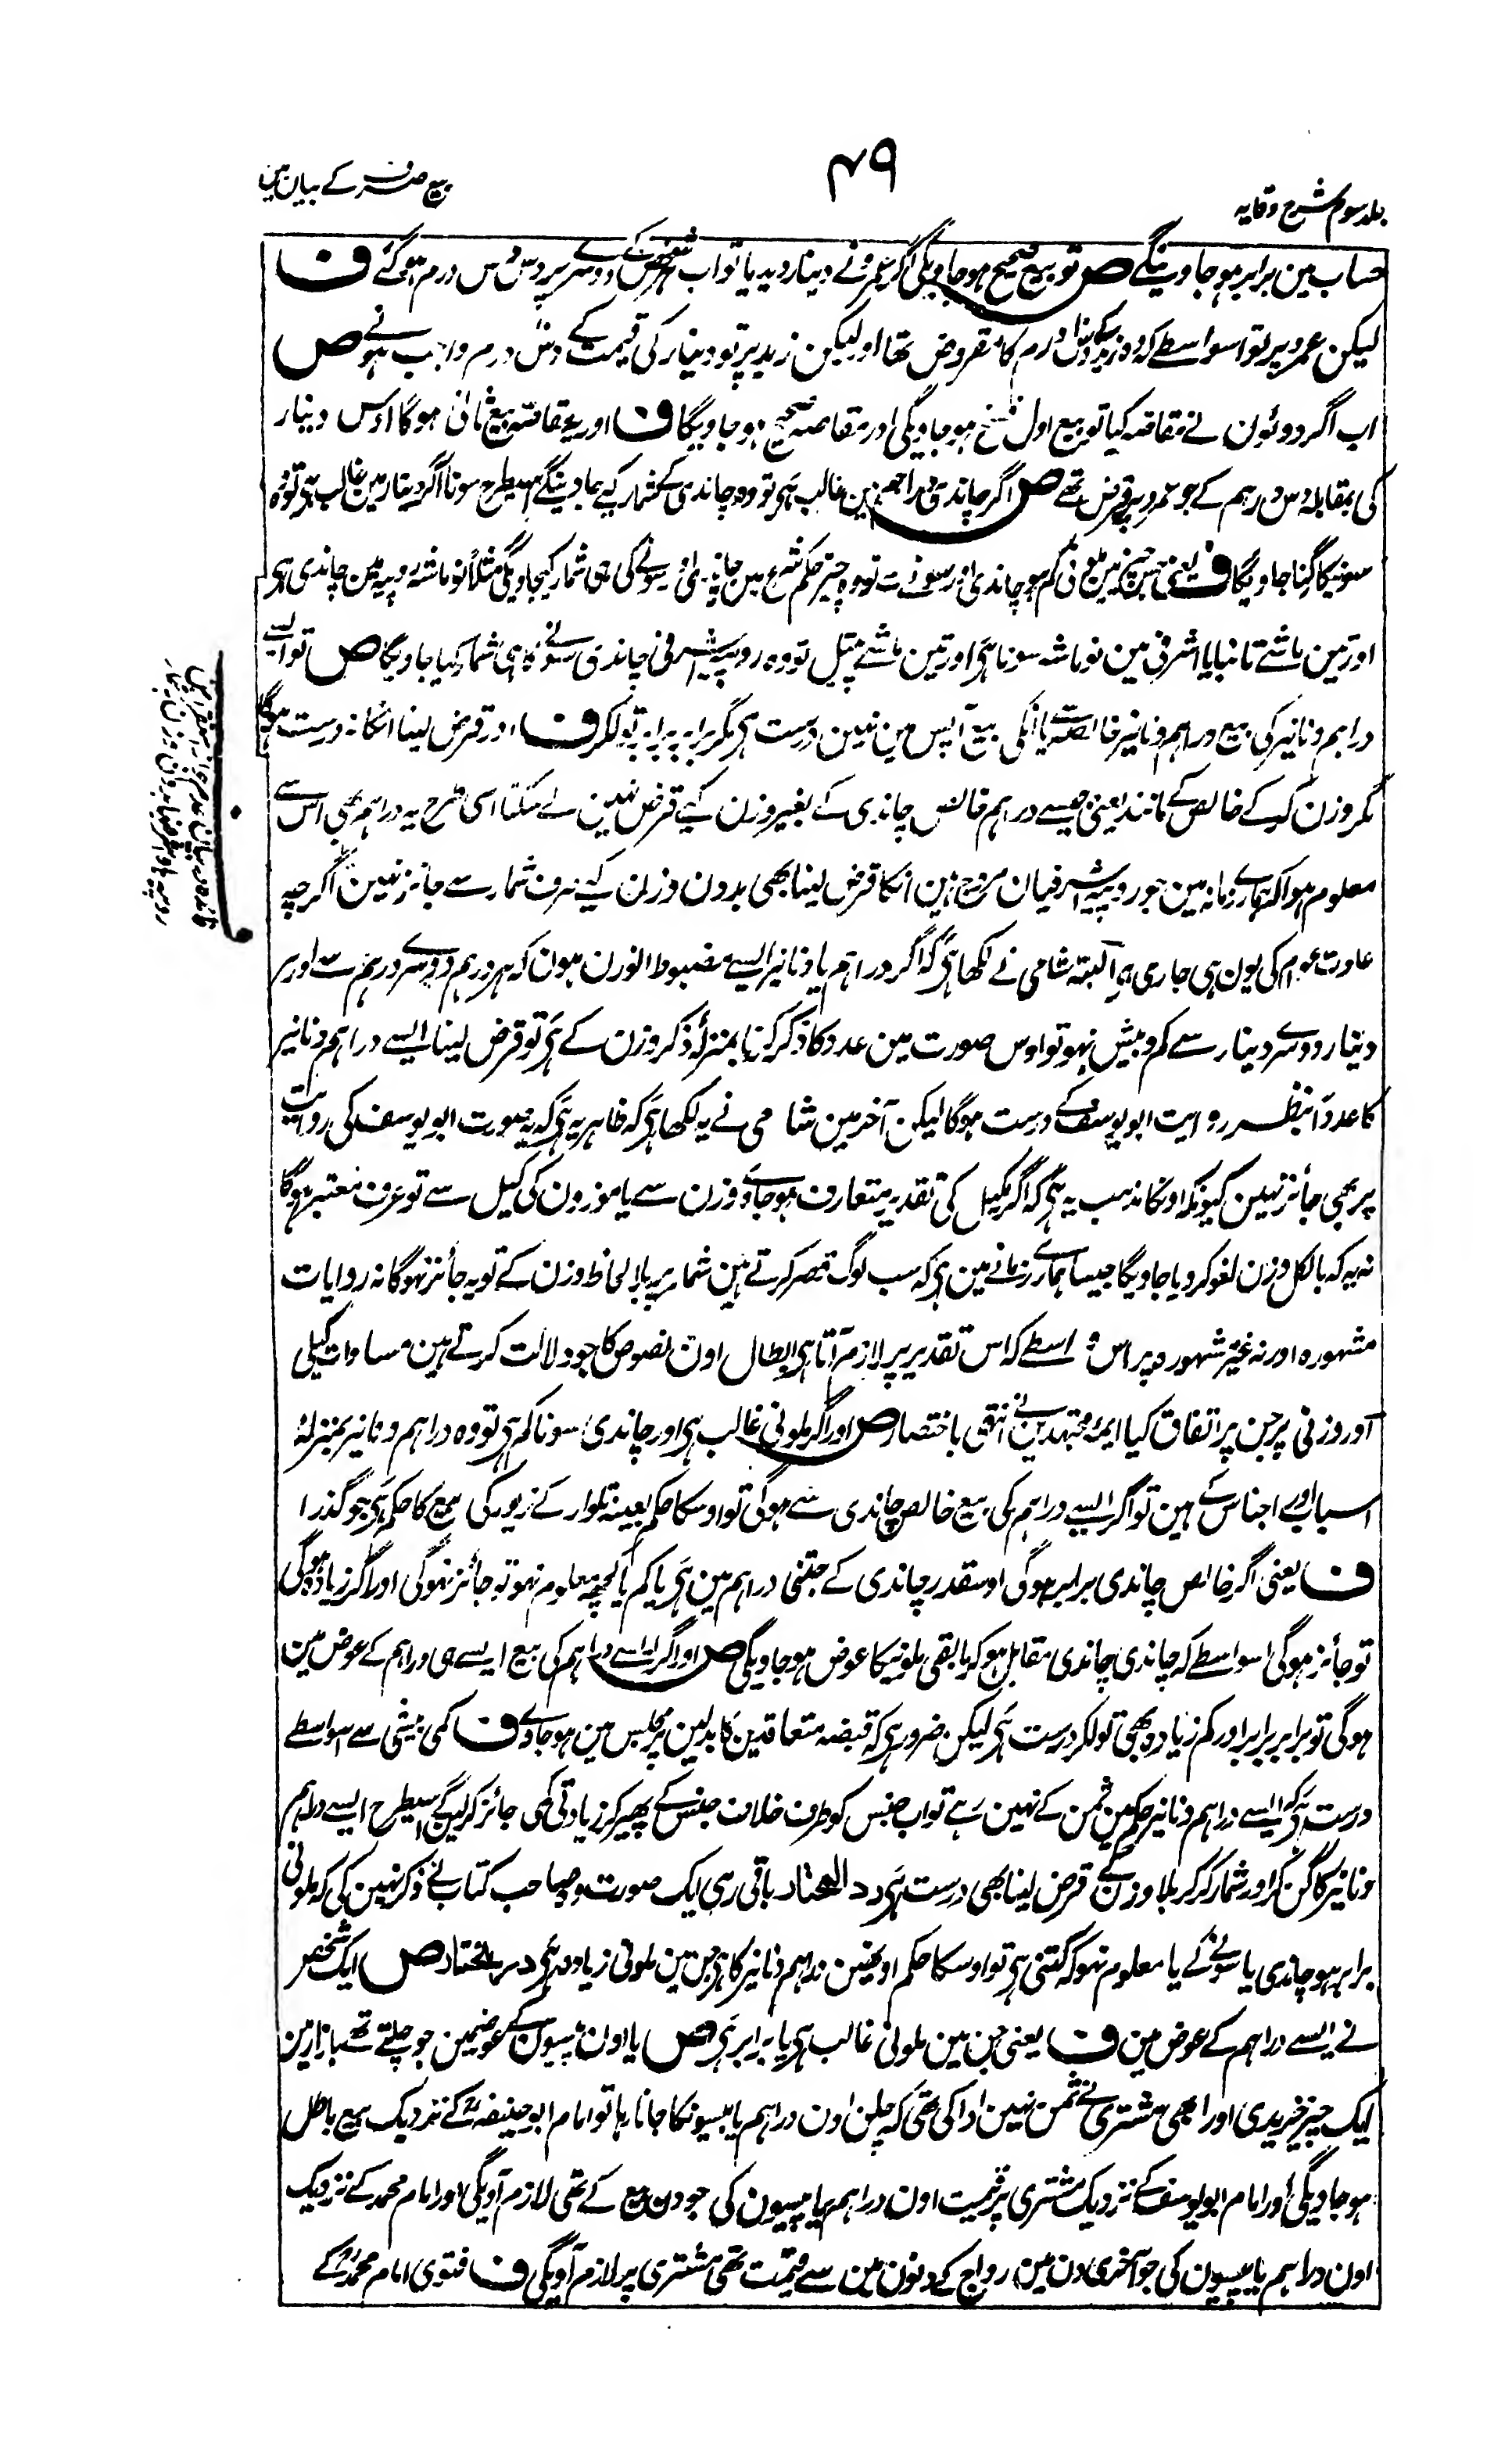 جلد سوم شرح وقایہ
۴۹
بیع صرف کے بیان مین
حساب مین برابر ہو جاوینگے ص تو بیع صحیح ہو جاویگی اگر عمرو نے دینار دیدیا تو اب ہر شخص کے دوسرے پر دس دس درم ہو گئے ف
لیکن عمرو پر تو اسواسطے کہ وہ زید کا دس درم کا مقروض تھا اور لیکن زید پر تو دینار کی قیمت کے دس درم واجب ہوئے ص
اب اگر دونون نے مقاصہ کیا تو بیع اول فسخ ہو جاویگی اور مقاصہ صحیح ہو جاویگا ف اور یہ مقاصہ بیع ثانی ہوگا اوس دینار
کی بمقابلہ دس درہم کے جو عمرو پر قرض تھے ص اگر چاندی دراہم مین غالب ہی تو وہ چاندی کے شمار کیے جاوینگے اسیطرح سونا اگر دینار مین غالب ہی تو وہ
سونیکا گنا جاویگا ف یعنی جس چیز مین ملونی کم ہو چاندی اور سونے سے تو وہ چیز حکم شرع مین چاندی اور سونے کی ہی شمار کیجاویگی مثلاً نو ماشہ روپیہ مین چاندی ہی
اور تین ماشے تانبا یا اشرفی مین نو ماشہ سونا ہی اور تین ماشے پیتل تو وہ روپیہ اشرفی چاندی سونے کا ہی شمار کیا جاویگا ص تو ایسے
دراہم دنانیر کی بیع دراہم دنانیر خالصہ سے یا انکی بیع آپس مین نہین درست ہی مگر برابر برابر تولکر ف اور قرض لینا انکا نہ درست ہوگا
مگر وزن کر کے خالص کے مانند یعنی جیسے دراہم خالص چاندی کے بغیر وزن کیے قرض نہین لے سکتا اسی طرح یہ دراہم بھی اس سے
معلوم ہوا کہ ہمارے زمانہ مین جو روپیہ اشرفیان مروج ہین انکا قرض لینا بھی بدون وزن کیے صرف شمار سے جائز نہین اگرچہ
عادت عوام کی یون ہی جاری ہی البتہ شامی نے لکھا ہی کہ اگر دراہم یا دنانیر ایسے مضبوط الوزن ہون کہ ہر درہم دوسرے درہم سے اور ہر
دینار دوسرے دینار سے کم و بیش نہو تو اوس صورت مین عدد کا ذکر کرنا بمنزلہ ذکر وزن کے ہی تو قرض لینا ایسے دراہم دنانیر
کا عدداً بنظر روایت ابو یوسف کے درست ہوگا لیکن آخر مین شامی نے یہ لکھا ہی کہ ظاہر یہ ہی کہ یہ صورت ابو یوسف کی روایت
پر بھی جائز نہین کیونکہ اونکا مذہب یہ ہی کہ اگر مکیل کی تقدیر متعارف ہو جاوے وزن سے یا موزون کی کیل سے تو عرف معتبر ہوگا
نہ یہ کہ بالکل وزن لغو کر دیا جاویگا جیسا ہمارے زمانے مین ہی کہ سب لوگ قصر کرتے ہین شمار پر بلا لحاظ وزن کے تو یہ جائز نہوگا نہ روایات
مشہورہ اور نہ غیر مشہورہ پر اس واسطے کہ اس تقدیر پر لازم آتا ہی ابطال اون نصوص کا جو دلالت کرتے ہین مساوات کیلی
اور وزنی پر جن پر اتفاق کیا ایمہ مجتہدین نے انتہی باختصار ص اور اگر ملونی غالب ہی اور چاندی سونا کم ہی تو وہ دراہم و دنانیر بمنزلہ
اسباب اور اجناس کے ہین تو اگر ایسے دراہم کی بیع خالص چاندی سے ہوگی تو اوسکا حکم بعینہ تلوار کے زیور کی بیع کا حکم ہی جو گذرا
ف یعنی اگر خالص چاندی برابر ہوگی اوسقدر چاندی کے جتنی دراہم مین ہی یا کم یا کچھ معلوم نہو تو جائز نہوگی اور اگر زیادہ ہوگی
تو جائز ہوگی اسواسطے کہ چاندی چاندی مقابل ہو کر مابقی ملونیکا عوض ہو جاویگی ص اور اگر ایسے دراہم کی بیع ایسے ہی دراہم کے عوض مین
ہوگی تو برابر برابر اور کم زیادہ بھی تولکر درست ہی لیکن ضرور ہی کہ قبضہ متعاقدین کا بدلین پر مجلس مین ہو جاوے ف کمی بیشی سے اسواسطے
درست ہی کہ ایسے دراہم دنانیر حکم مین ثمن کے نہین رہے تو اب جنس کو طرف خلاف جنس کے پھیر کر زیادتی بھی جائز کر لینگے اسیطرح ایسے دراہم
دنانیر کا گن کر اور شمار کر کر بلا وزن کے قرض لینا بھی درست ہی رد المحتار باقی رہی ایک صورت وہ صاحب کتاب نے ذکر نہین کی کہ ملونی
برابر ہو چاندی یا سونے کے یا معلوم نہو کہ کتنی ہی تو اوسکا حکم اونھین دراہم دنانیر کا ہی جن مین ملونی زیادہ ہی در مختار ص ایک شخص
نے ایسے دراہم کے عوض مین ف یعنی جن مین ملونی غالب ہی یا برابر ہی ص یا اون پیسون کے عوضمین جو چلتے تھے بازار مین
ایک چیز خریدی اور ابھی مشتری نے ثمن نہین ادا کی تھی کہ چلن اون دراہم یا پیسونکا جاتا رہا تو امام ابو حنیفہ رح کے نزدیک بیع باطل
ہو جاویگی اور امام ابو یوسف کے نزدیک مشتری پر قیمت اون دراہم یا پیسون کی جو دن بیع کے تھی لازم آویگی اور امام محمد کے نزدیک
اون دراہم یا پیسون کی جو آخری دن مین رواج کے دنون مین سے قیمت تھی مشتری پر لازم آویگی ف فتوی امام محمد رح کے